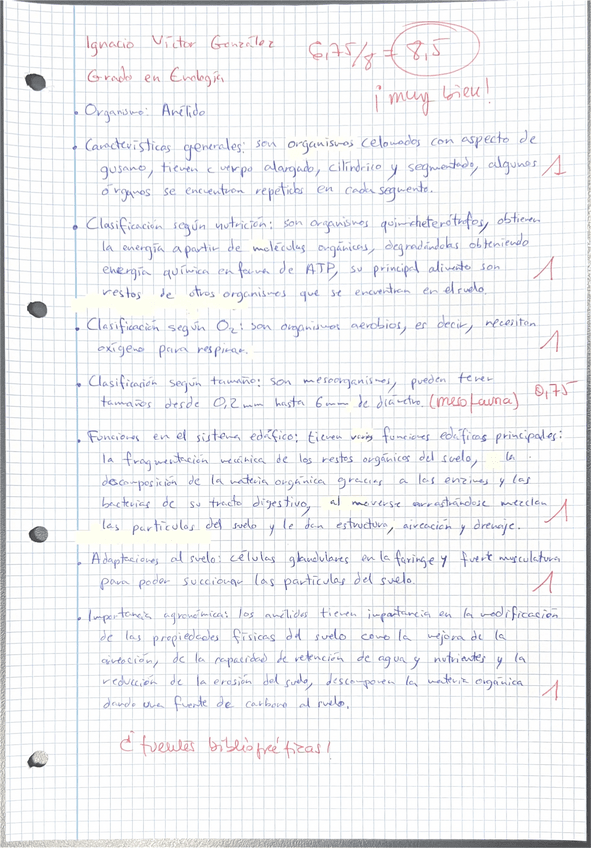 Ignacio Víctor González
6,75/8 = 8,5
Grado en Enología
¡muy bien!
• Organismo: Anélido
• Características generales: son organismos celomados con aspecto de
gusano, tienen cuerpo alargado, cilíndrico y segmentado, algunos
órganos se encuentran repetidos en cada segmento.
1
• Clasificación según nutrición: son organismos quimioheterótrofos, obtienen
la energía a partir de moléculas orgánicas, degradándolas obteniendo
energía química en forma de ATP, su principal alimento son
restos de otros organismos que se encuentran en el suelo.
1
• Clasificación según O2: son organismos aerobios, es decir, necesitan
oxígeno para respirar.
1
• Clasificación según tamaño: son mesorganismos, pueden tener
tamaños desde 0,2 mm hasta 6 mm de diámetro. (mesofauna) 0,75
• Funciones en el sistema edáfico: tienen varias funciones edáficas principales:
la fragmentación mecánica de los restos orgánicos del suelo, la
descomposición de la materia orgánica gracias a las enzimas y las
bacterias de su tracto digestivo, al moverse arrastrándose mezclan
las partículas del suelo y le dan estructura, aireación y drenaje.
1
• Adaptaciones al suelo: células glandulares en la faringe y fuerte musculatura
para poder succionar las partículas del suelo.
1
• Importancia agronómica: los anélidos tienen importancia en la modificación
de las propiedades físicas del suelo como la mejora de la
aireación, de la capacidad de retención de agua y nutrientes y la
reducción de la erosión del suelo, descomponen la materia orgánica
dando una fuente de carbono al suelo.
1
fuentes bibliográficas!